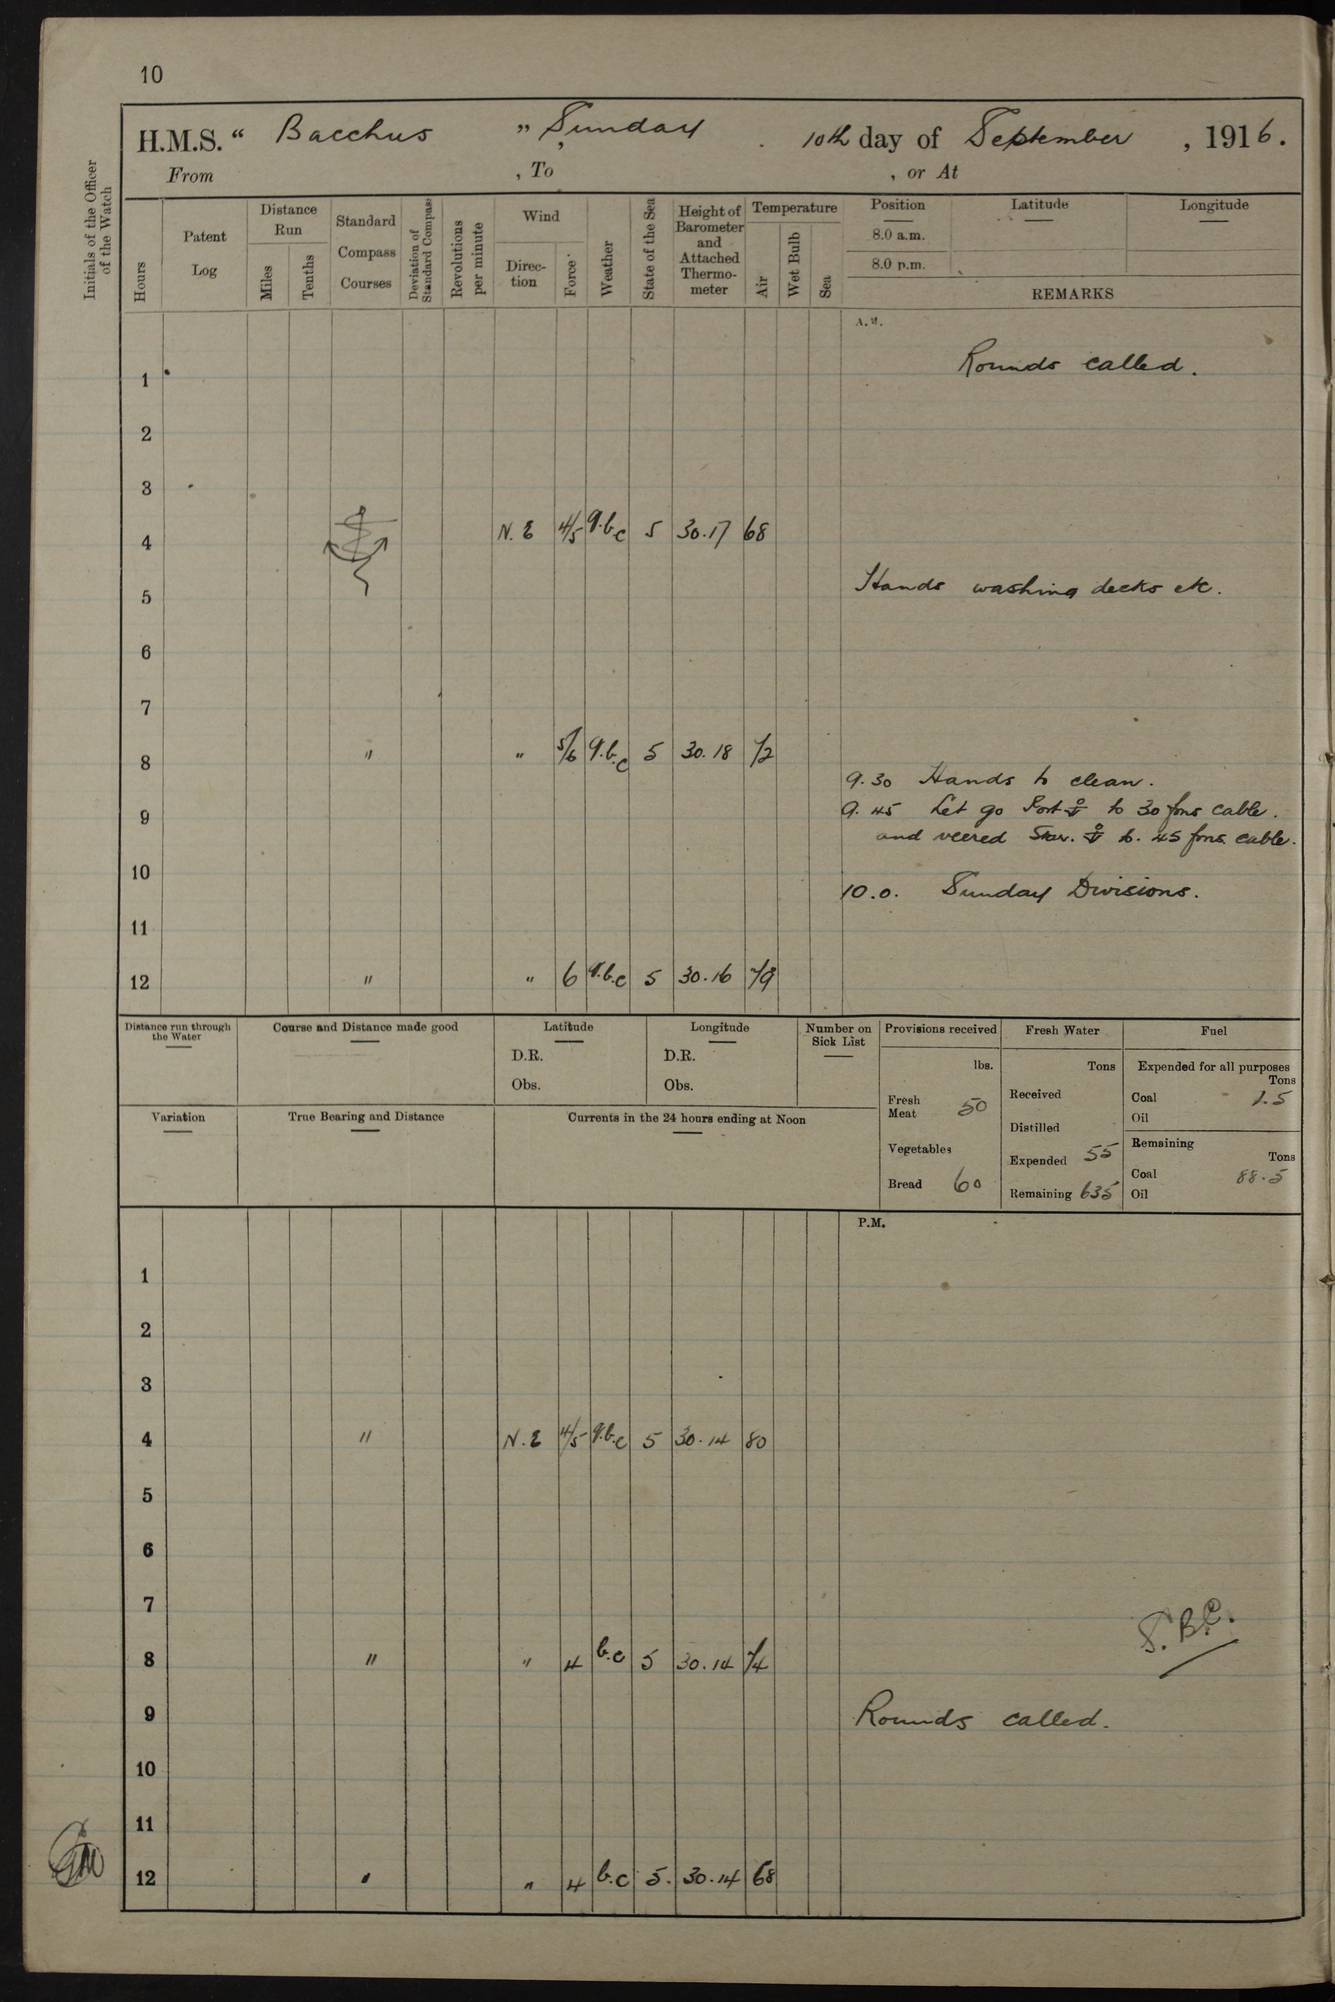 10
H.M.S. “ Bacchus ” , Sunday . 10th day of September , 1916.
From , To , or At
Initials of the Officer of the Watch
Hours
Patent Log
Distance Run
Miles
Tenths
Standard Compass Courses
Deviation of Standard Compass
Revolutions per minute
Wind
Direc-tion
Force
Weather
State of the Sea
Height of Barometer and Attached Thermo-meter
Temperature
Air
Wet Bulb
Sea
Position
8.0 a.m.
8.0 p.m.
Latitude
Longitude
REMARKS
A.M.
1 Rounds called.
2
3
4 N.E 4/5 q.b.c 5 30.17 68
5 Hands washing decks etc.
6
7
8 " " 5/6 q.b.c 5 30.18 72
9.30 Hands to clean.
9 9.45 Let go Port ⚓ to 30 fms cable.
and veered Star. ⚓ to. 45 fms. cable.
10 10.0. Sunday Divisions.
11
12 " " 6 q.b.c 5 30.16 79
Distance run through the Water
Course and Distance made good
Latitude
D.R.
Obs.
Longitude
D.R.
Obs.
Number on Sick List
Provisions received
lbs.
Fresh Meat 50
Vegetables
Bread 60
Fresh Water
Tons
Received
Distilled
Expended 55
Remaining 635
Fuel
Expended for all purposes
Tons
Coal 1.5
Oil
Remaining
Tons
Coal 88.5
Oil
Variation
True Bearing and Distance
Currents in the 24 hours ending at Noon
P.M.
1
2
3
4 " N.E 4/5 q.b.c 5 30.14 80
5
6
7
S.B.C.
8 " " 4 b.c 5 30.14 74
9 Rounds called.
10
11
12 " " 4 b.c 5. 30.14 68